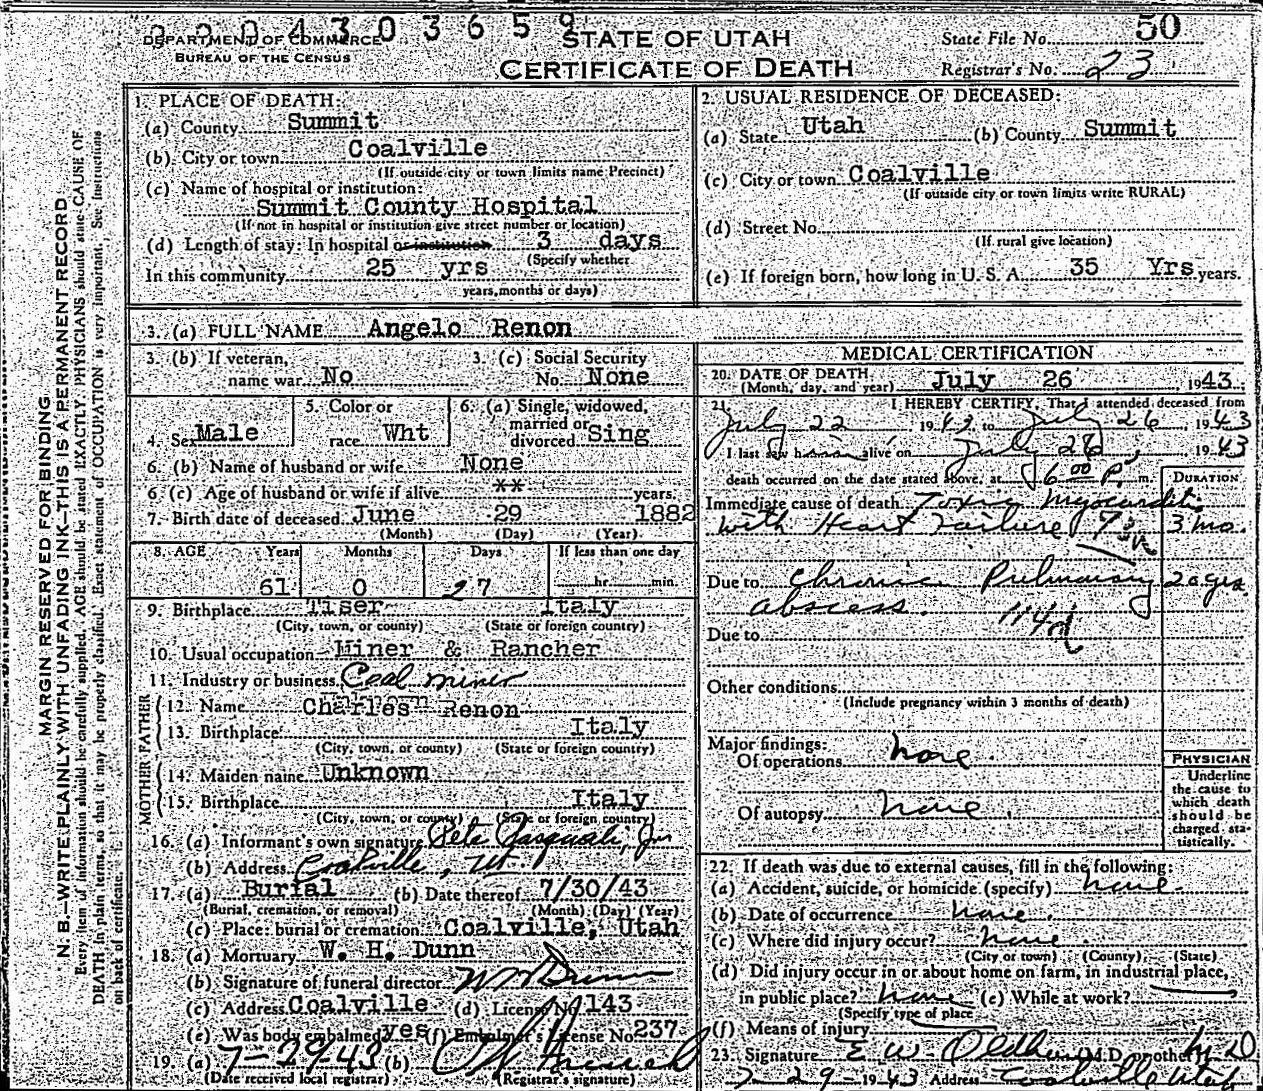 0 0 0 4 3 0 3 6 5 9
DEPARTMENT OF COMMERCE
BUREAU OF THE CENSUS
STATE OF UTAH
CERTIFICATE OF DEATH
State File No. 50
Registrar's No. 23
MARGIN RESERVED FOR BINDING
N. B.—WRITE PLAINLY WITH UNFADING INK—THIS IS A PERMANENT RECORD
Every item of information should be carefully supplied. AGE should be stated EXACTLY. PHYSICIANS should state CAUSE OF
DEATH in plain terms, so that it may be properly classified. Exact statement of OCCUPATION is very important. See Instructions
on back of certificate.
1. PLACE OF DEATH:
(a) County Summit
(b) City or town Coalville
(If outside city or town limits name Precinct)
(c) Name of hospital or institution:
Summit County Hospital
(If not in hospital or institution give street number or location)
(d) Length of stay: In hospital or institution 3 days
(Specify whether
In this community 25 yrs
years, months or days)
2. USUAL RESIDENCE OF DECEASED:
(a) State Utah (b) County Summit
(c) City or town Coalville
(If outside city or town limits write RURAL)
(d) Street No.
(If rural give location)
(e) If foreign born, how long in U. S. A. 35 Yrs years.
3. (a) FULL NAME Angelo Renon
3. (b) If veteran, name war No
3. (c) Social Security No. None
4. Sex Male
5. Color or race Wht
6. (a) Single, widowed, married or divorced Sing
6. (b) Name of husband or wife None
6. (c) Age of husband or wife if alive ** years.
7. Birth date of deceased June 29 1882
(Month) (Day) (Year)
8. AGE Years Months Days If less than one day
61 0 27 hr. min.
9. Birthplace Tiser Italy
(City, town, or county) (State or foreign country)
10. Usual occupation Miner & Rancher
11. Industry or business Coal miner
FATHER
12. Name Charles Renon
13. Birthplace Italy
(City, town, or county) (State or foreign country)
MOTHER
14. Maiden name Unknown
15. Birthplace Italy
(City, town, or county) (State or foreign country)
16. (a) Informant's own signature Pete Pasquali, Jr
(b) Address Coalville, Ut.
17. (a) Burial (b) Date thereof 7/30/43
(Burial, cremation, or removal) (Month) (Day) (Year)
(c) Place: burial or cremation Coalville, Utah
18. (a) Mortuary W. H. Dunn
(b) Signature of funeral director W H Dunn
(c) Address Coalville (d) License No. 143
(e) Was body embalmed yes (f) Embalmer's License No. 237
19. (a) 7-29-43 (b)
(Date received local registrar) (Registrar's signature)
MEDICAL CERTIFICATION
20. DATE OF DEATH
(Month, day, and year) July 26 1943
21. I HEREBY CERTIFY, That I attended deceased from
July 22 1943 to July 26, 1943
I last saw him alive on July 26, 1943
death occurred on the date stated above, at 6 00 P. m.
DURATION
Immediate cause of death Toxic Myocarditis
with Heart Failure 3 mo.
Due to Chronic Pulmonary 20 yrs
abscess. 114d
Due to
Other conditions
(Include pregnancy within 3 months of death)
Major findings:
Of operations none.
Of autopsy none
PHYSICIAN
Underline
the cause to
which death
should be
charged sta-
tistically.
22. If death was due to external causes, fill in the following:
(a) Accident, suicide, or homicide (specify) none.
(b) Date of occurrence none.
(c) Where did injury occur? none.
(City or town) (County) (State)
(d) Did injury occur in or about home on farm, in industrial place,
in public place? none (e) While at work?
(Specify type of place
(f) Means of injury
23. Signature E W Oldham (M.D. or other) M D
7-29-1943 Address Coalville Utah